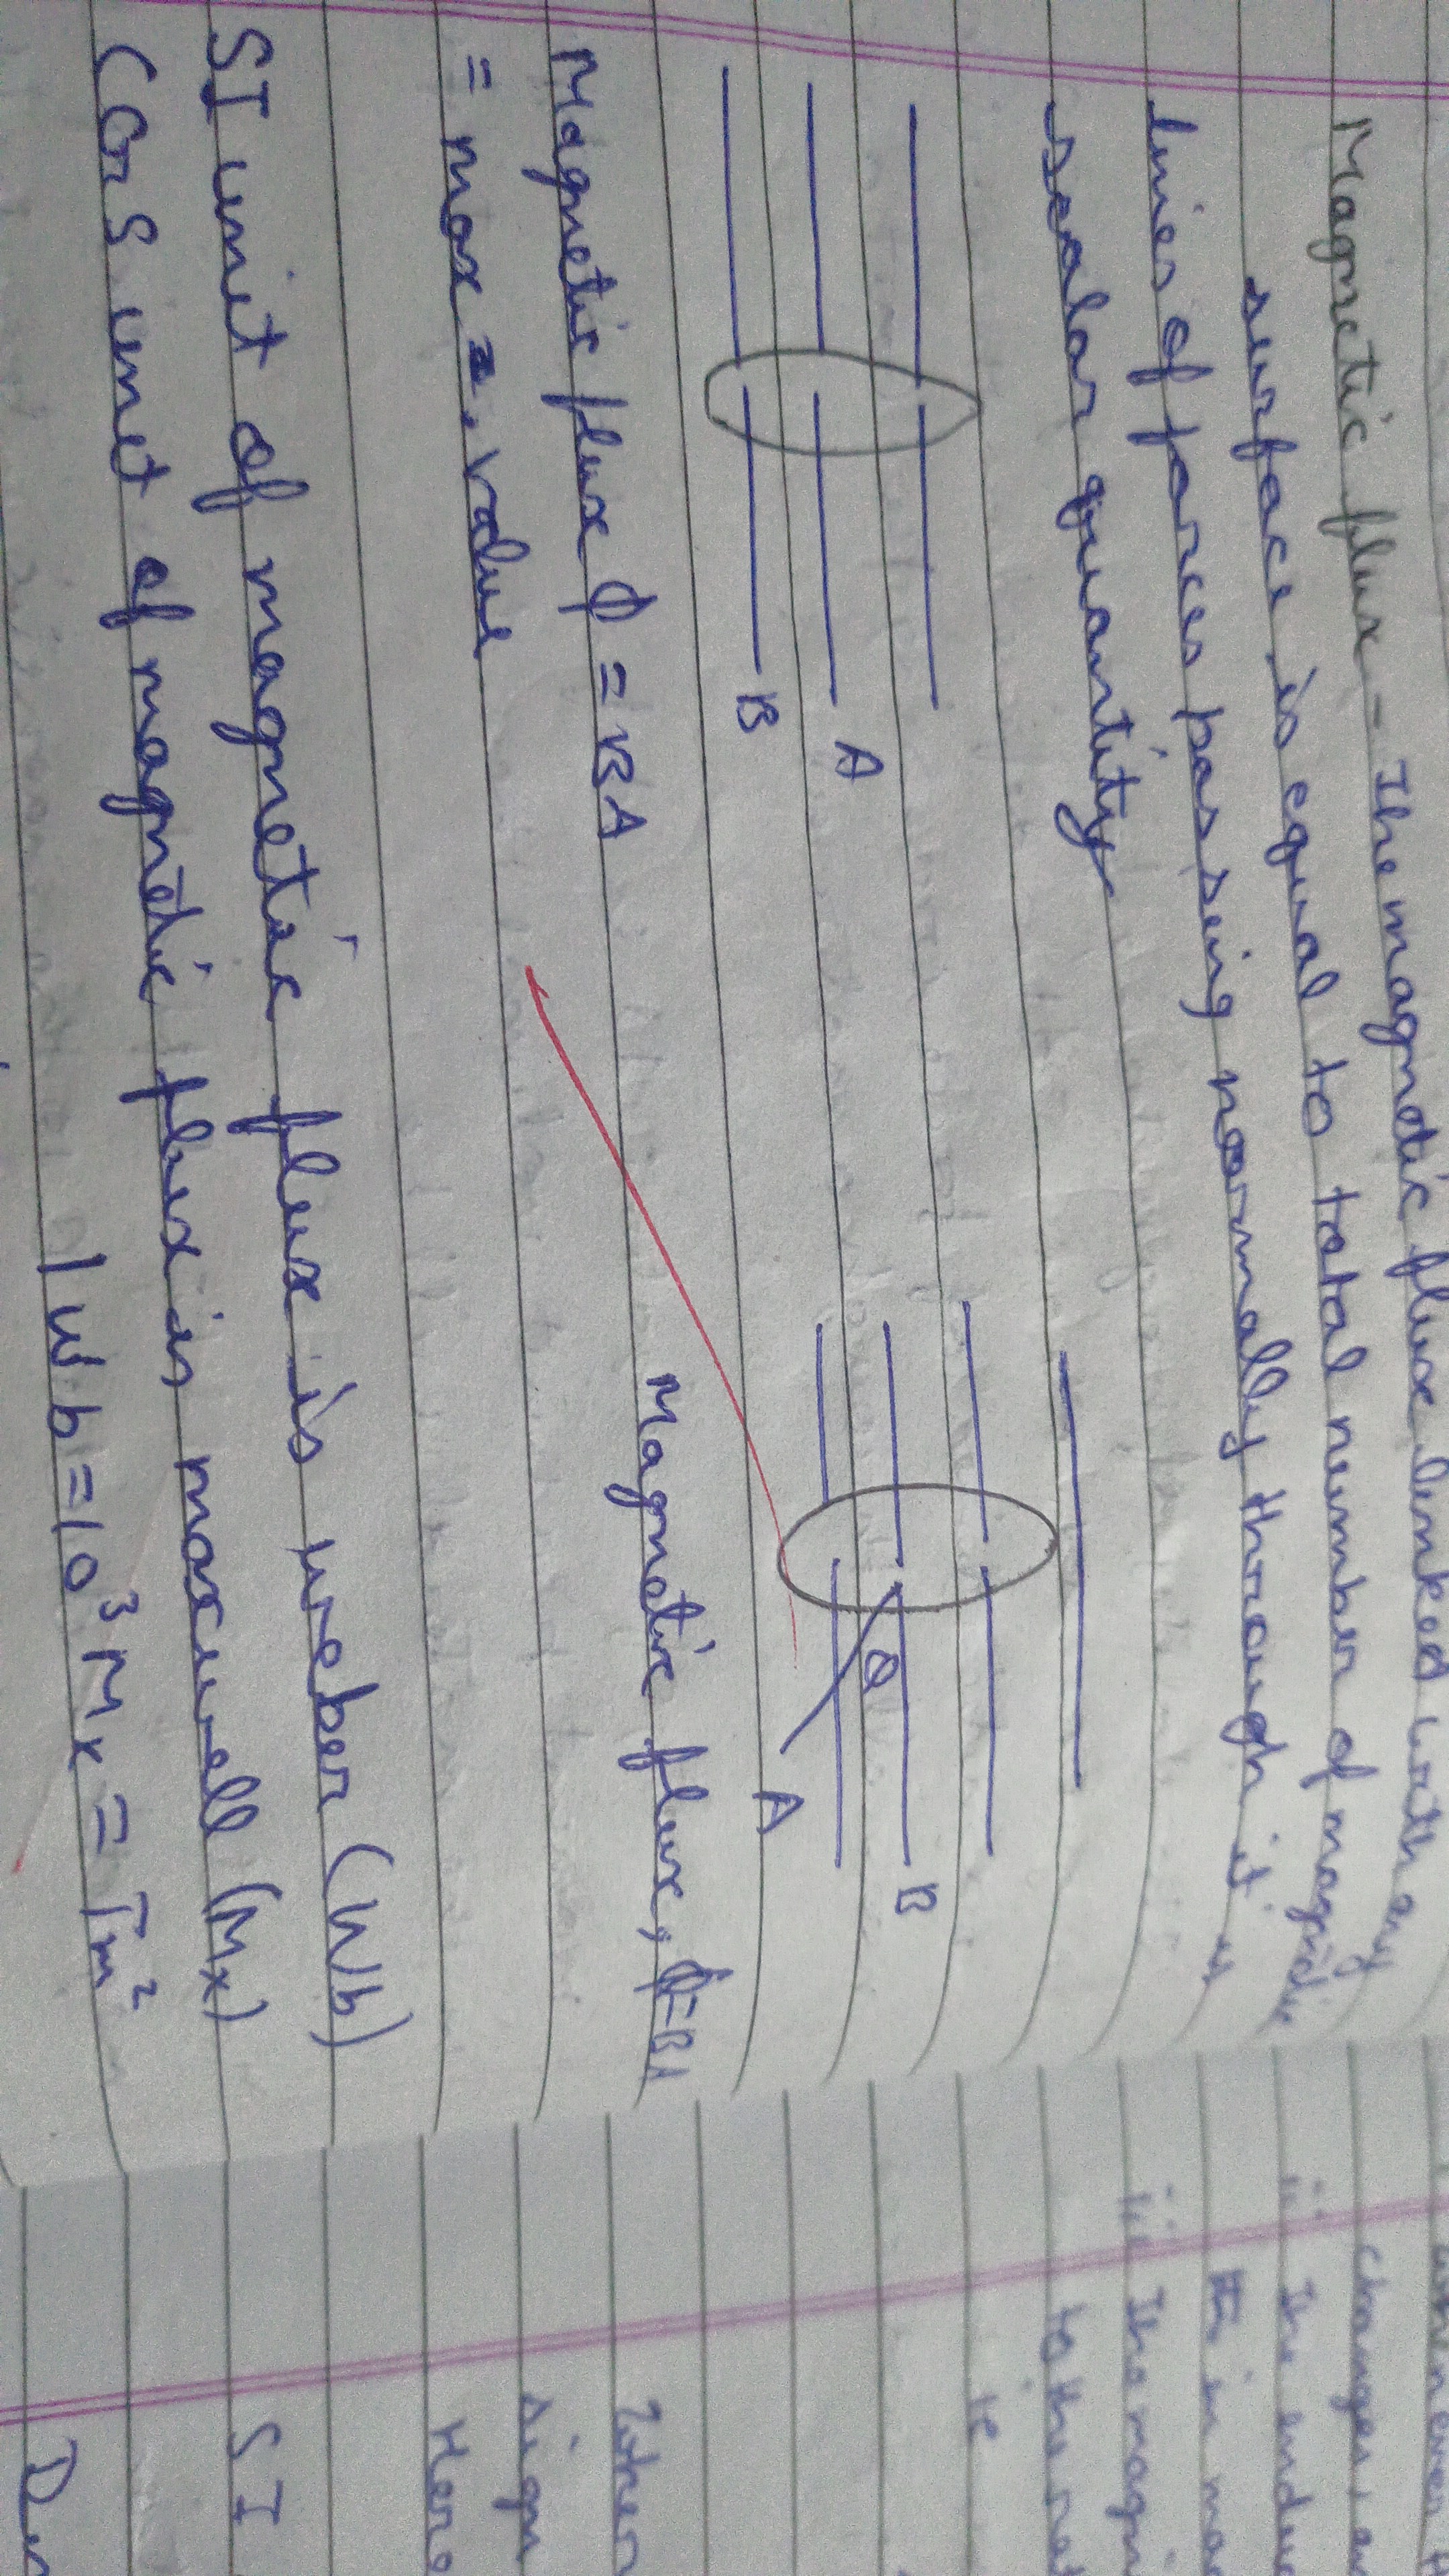 Magnetic flux - The magnetic flux linked with any
surface is equal to total number of magnetic
lines of forces passing normally through it.
scalar quantity
B
A
θ
A
B
Magnetic flux ϕ = BA
= max = value
Magnetic flux, ϕ=BA
SI unit of magnetic flux is weber (Wb)
CGS unit of magnetic flux is maxwell (Mx)
1 Wb = 10³ Mx = Tm²
changes, a
ii The indu
iii The magn
to the rat
sign
Here
SI